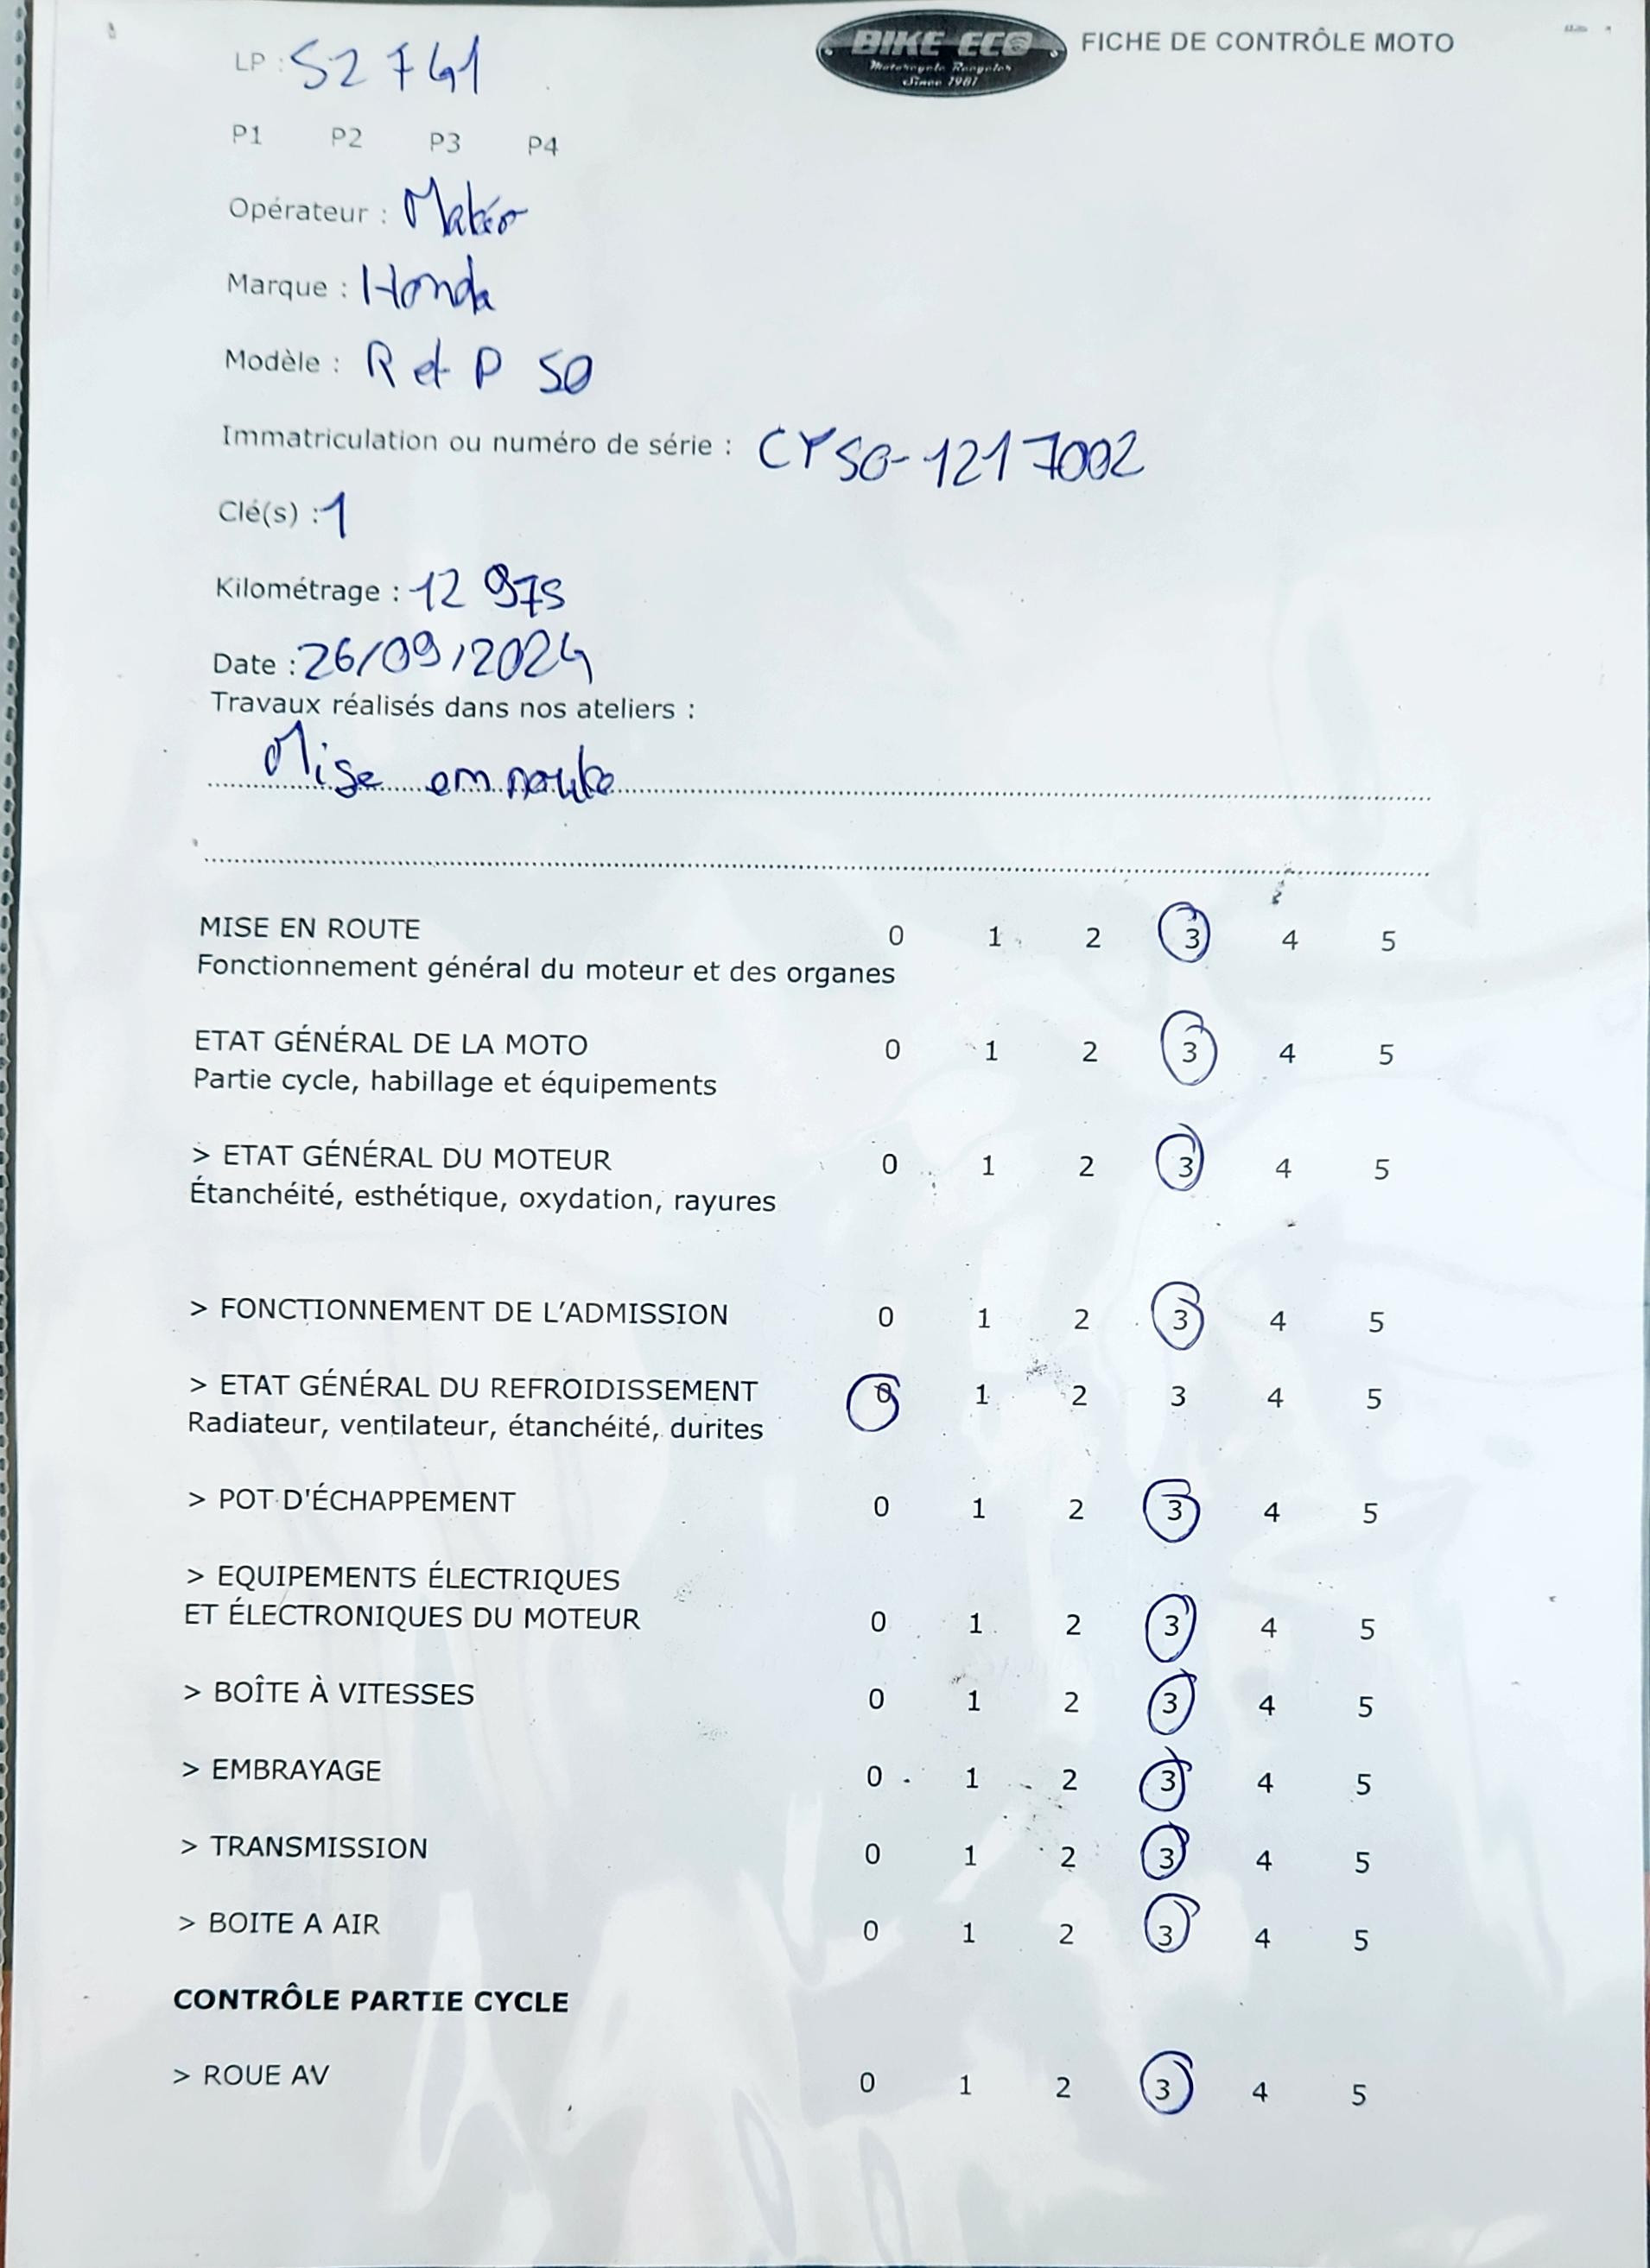 LP : 52741
BIKE ECO
Motorcycle Recycler
Since 1981
FICHE DE CONTRÔLE MOTO
P1 P2 P3 P4
Opérateur : Matéo
Marque : Honda
Modèle : R et P 50
Immatriculation ou numéro de série : CY50-1217002
Clé(s) : 1
Kilométrage : 12 975
Date : 26/09/2024
Travaux réalisés dans nos ateliers :
Mise en route
MISE EN ROUTE 0 1 2 3 4 5
Fonctionnement général du moteur et des organes
ETAT GÉNÉRAL DE LA MOTO 0 1 2 3 4 5
Partie cycle, habillage et équipements
> ETAT GÉNÉRAL DU MOTEUR 0 1 2 3 4 5
Étanchéité, esthétique, oxydation, rayures
> FONCTIONNEMENT DE L'ADMISSION 0 1 2 3 4 5
> ETAT GÉNÉRAL DU REFROIDISSEMENT 0 1 2 3 4 5
Radiateur, ventilateur, étanchéité, durites
> POT D'ÉCHAPPEMENT 0 1 2 3 4 5
> EQUIPEMENTS ÉLECTRIQUES
ET ÉLECTRONIQUES DU MOTEUR 0 1 2 3 4 5
> BOÎTE À VITESSES 0 1 2 3 4 5
> EMBRAYAGE 0 1 2 3 4 5
> TRANSMISSION 0 1 2 3 4 5
> BOITE A AIR 0 1 2 3 4 5
CONTRÔLE PARTIE CYCLE
> ROUE AV 0 1 2 3 4 5